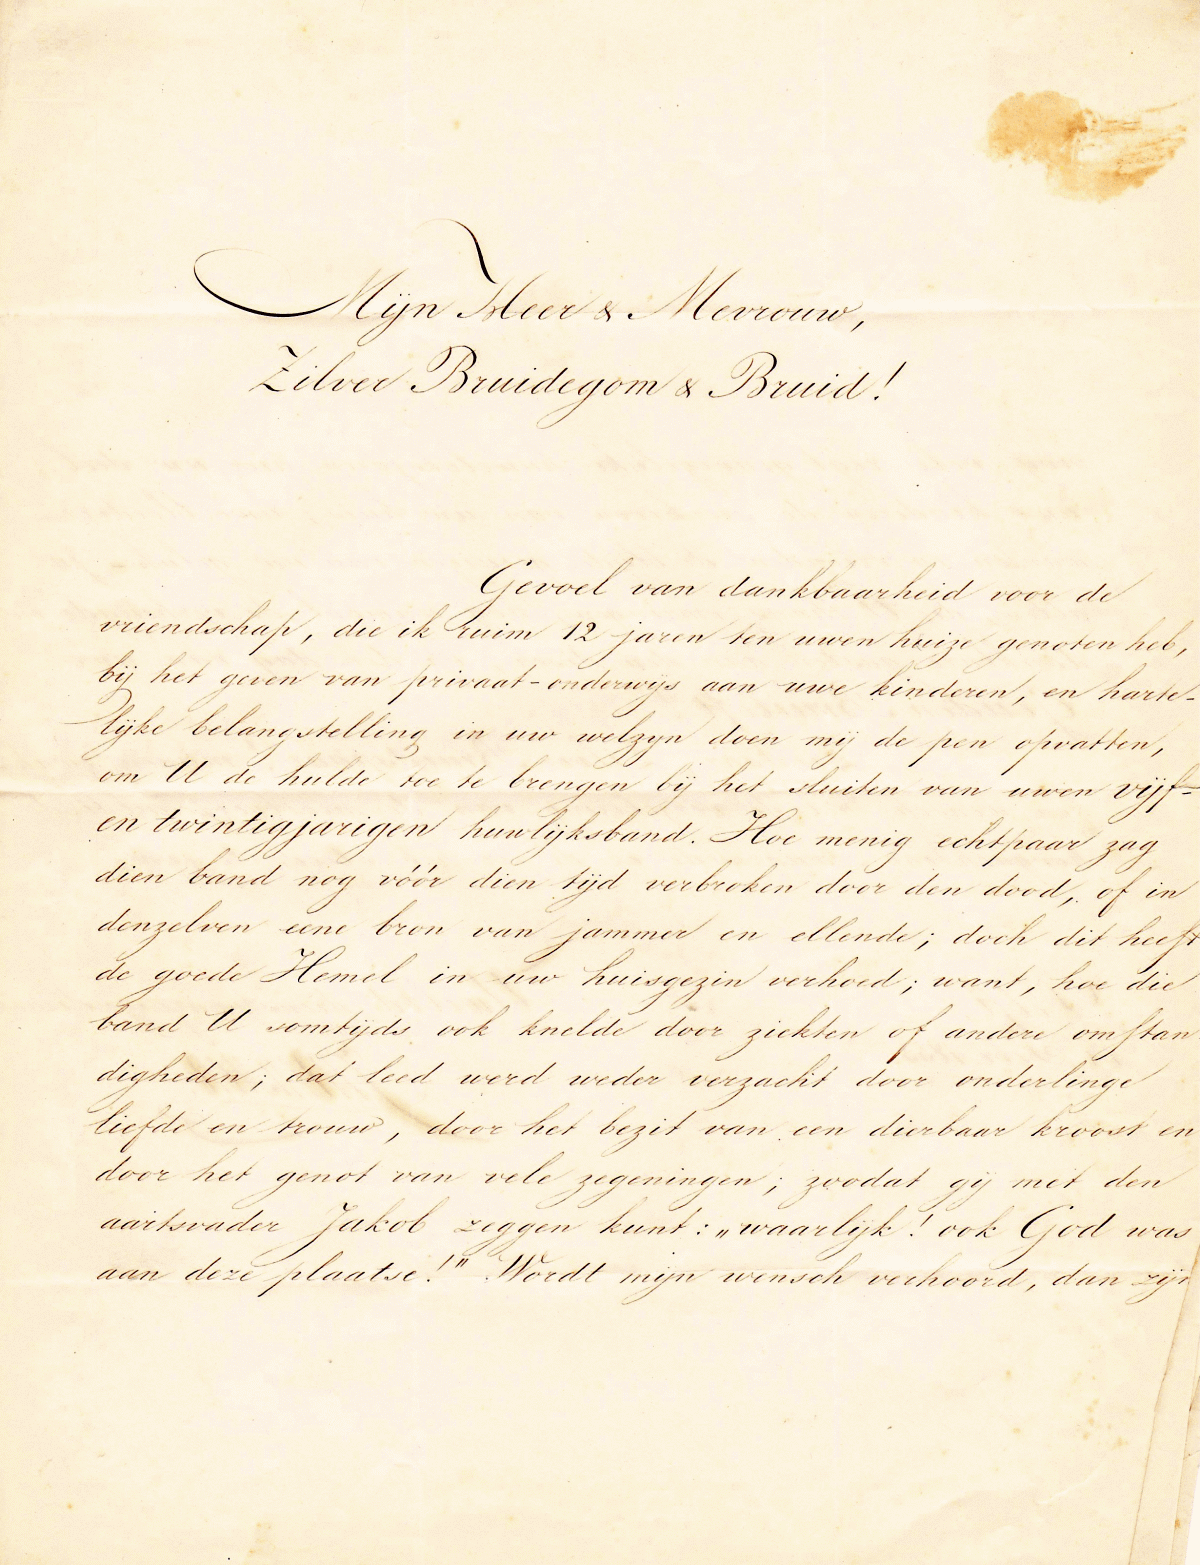 Mijn Heer & Mevrouw,
Zilver Bruidegom & Bruid!
Gevoel van dankbaarheid voor de
vriendschap, die ik ruim 12 jaren ten uwen huize genoten heb,
bij het geven van privaat-onderwijs aan uwe kinderen, en harte-
lijke belangstelling in uw welzyn doen mij de pen opvatten,
om U de hulde toe te brengen bij het sluiten van uwen vijf-
en twintigjarigen huwlijksband. Hoe menig echtpaar zag
dien band nog vóór dien tijd verbroken door den dood, of in
denzelven eene bron van jammer en ellende; doch dit heeft
de goede Hemel in uw huisgezin verhoed; want, hoe die
band U somtijds ook knelde door ziekten of andere omstan
digheden; dat leed werd weder verzacht door onderlinge
liefde en trouw, door het bezit van een dierbaar kroost en
door het genot van vele zegeningen; zoodat gij met den
aartsvader Jakob zeggen kunt: „waarlijk! ook God was
aan deze plaatse!" Wordt mijn wensch verhoord, dan zijn